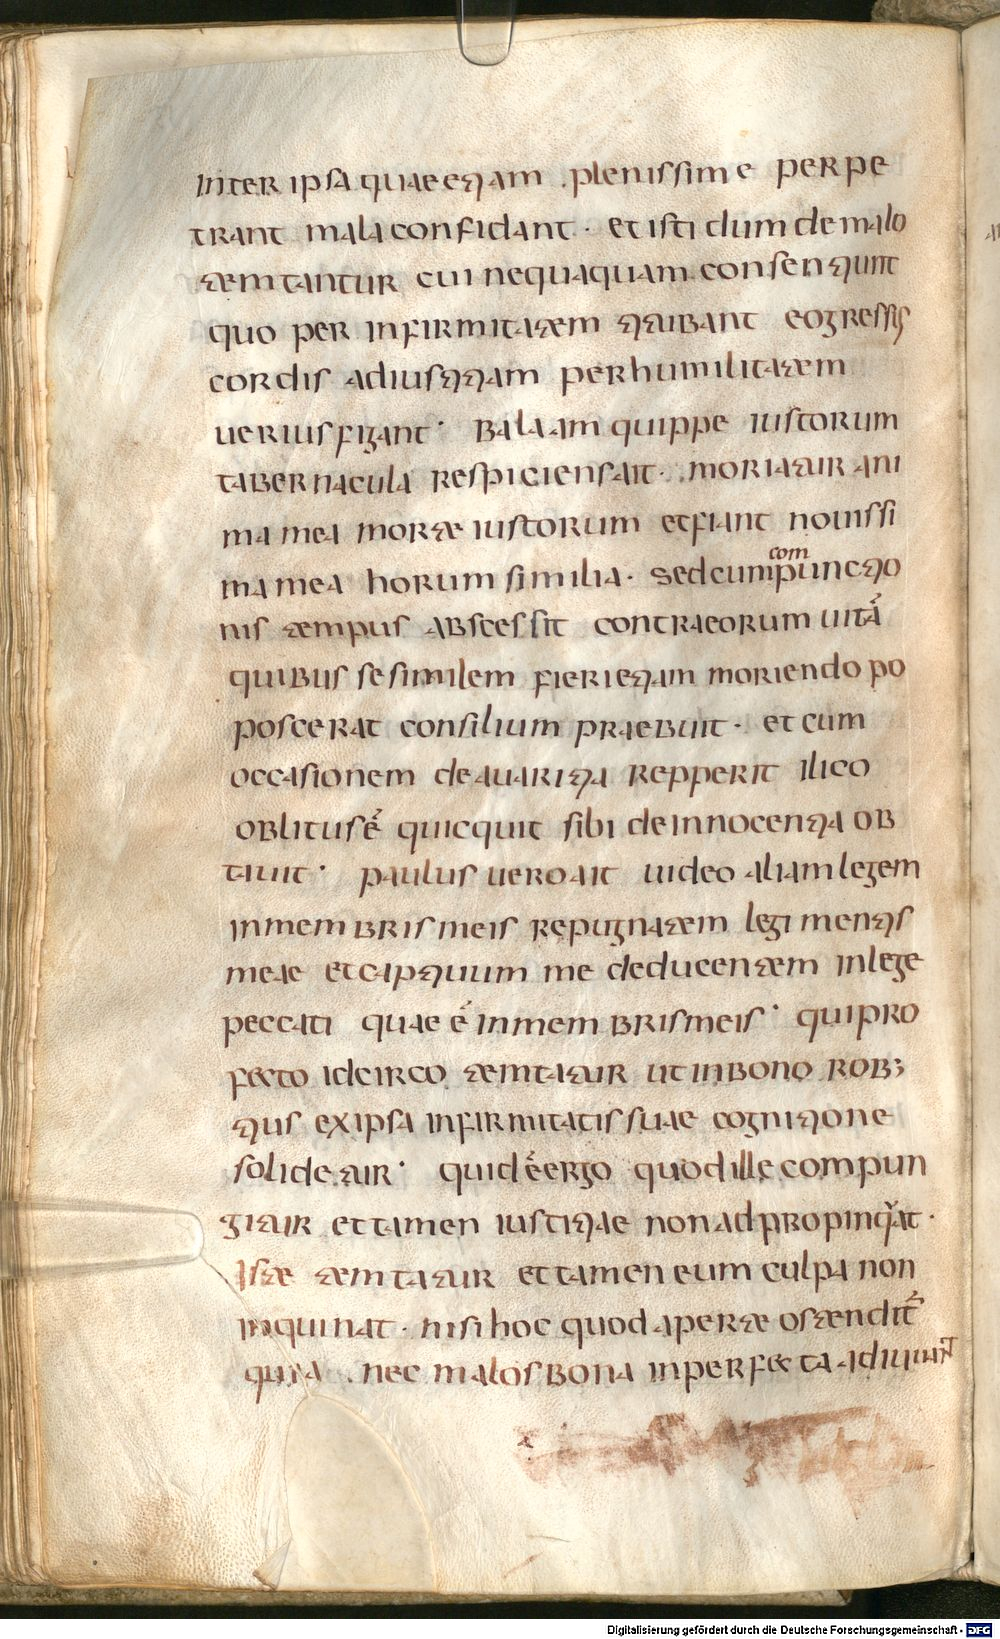 inter ipsa quae etiam plenissime perpe
trant mala confidant · et isti dum de malo
temtantur cui nequaquam consentiunt
quo per infirmitatem titubant eo gressus
cordis ad iustitiam per humilitatem
uerius figant · Balaam quippe iustorum
tabernacula respiciens ait · moriatur ani
ma mea morte iustorum et fiant nouissi
ma mea horum similia · sed cum compunctio
nis tempus abscessit contra eorum uitā
quibus se similem fieri etiam moriendo po
poscerat consilium praebuit · et cum
occasionem de auaritia repperit ilico
oblitus ē quicquit sibi de innocentia ob
tauit · paulus uero ait uideo aliam legem
in membris meis repugnatem legi mentis
meae et captiuum me deducentem in lege
peccati quae ē in membris meis · qui pro
fecto idcirco temtatur ut in bono rob;
tius ex ipsa infirmitatis suae cognitione
solidetur · quid ē ergo quod ille compun
gitur et tamen iustitiae non adpropinquat ·
Iste temtatur et tamen eum culpa non
inquinat · nisi hoc quod aperte ostenditr̄
quia nec malos bona inperfecta adiuuant
com
Digitalisierung gefördert durch die Deutsche Forschungsgemeinschaft - DFG